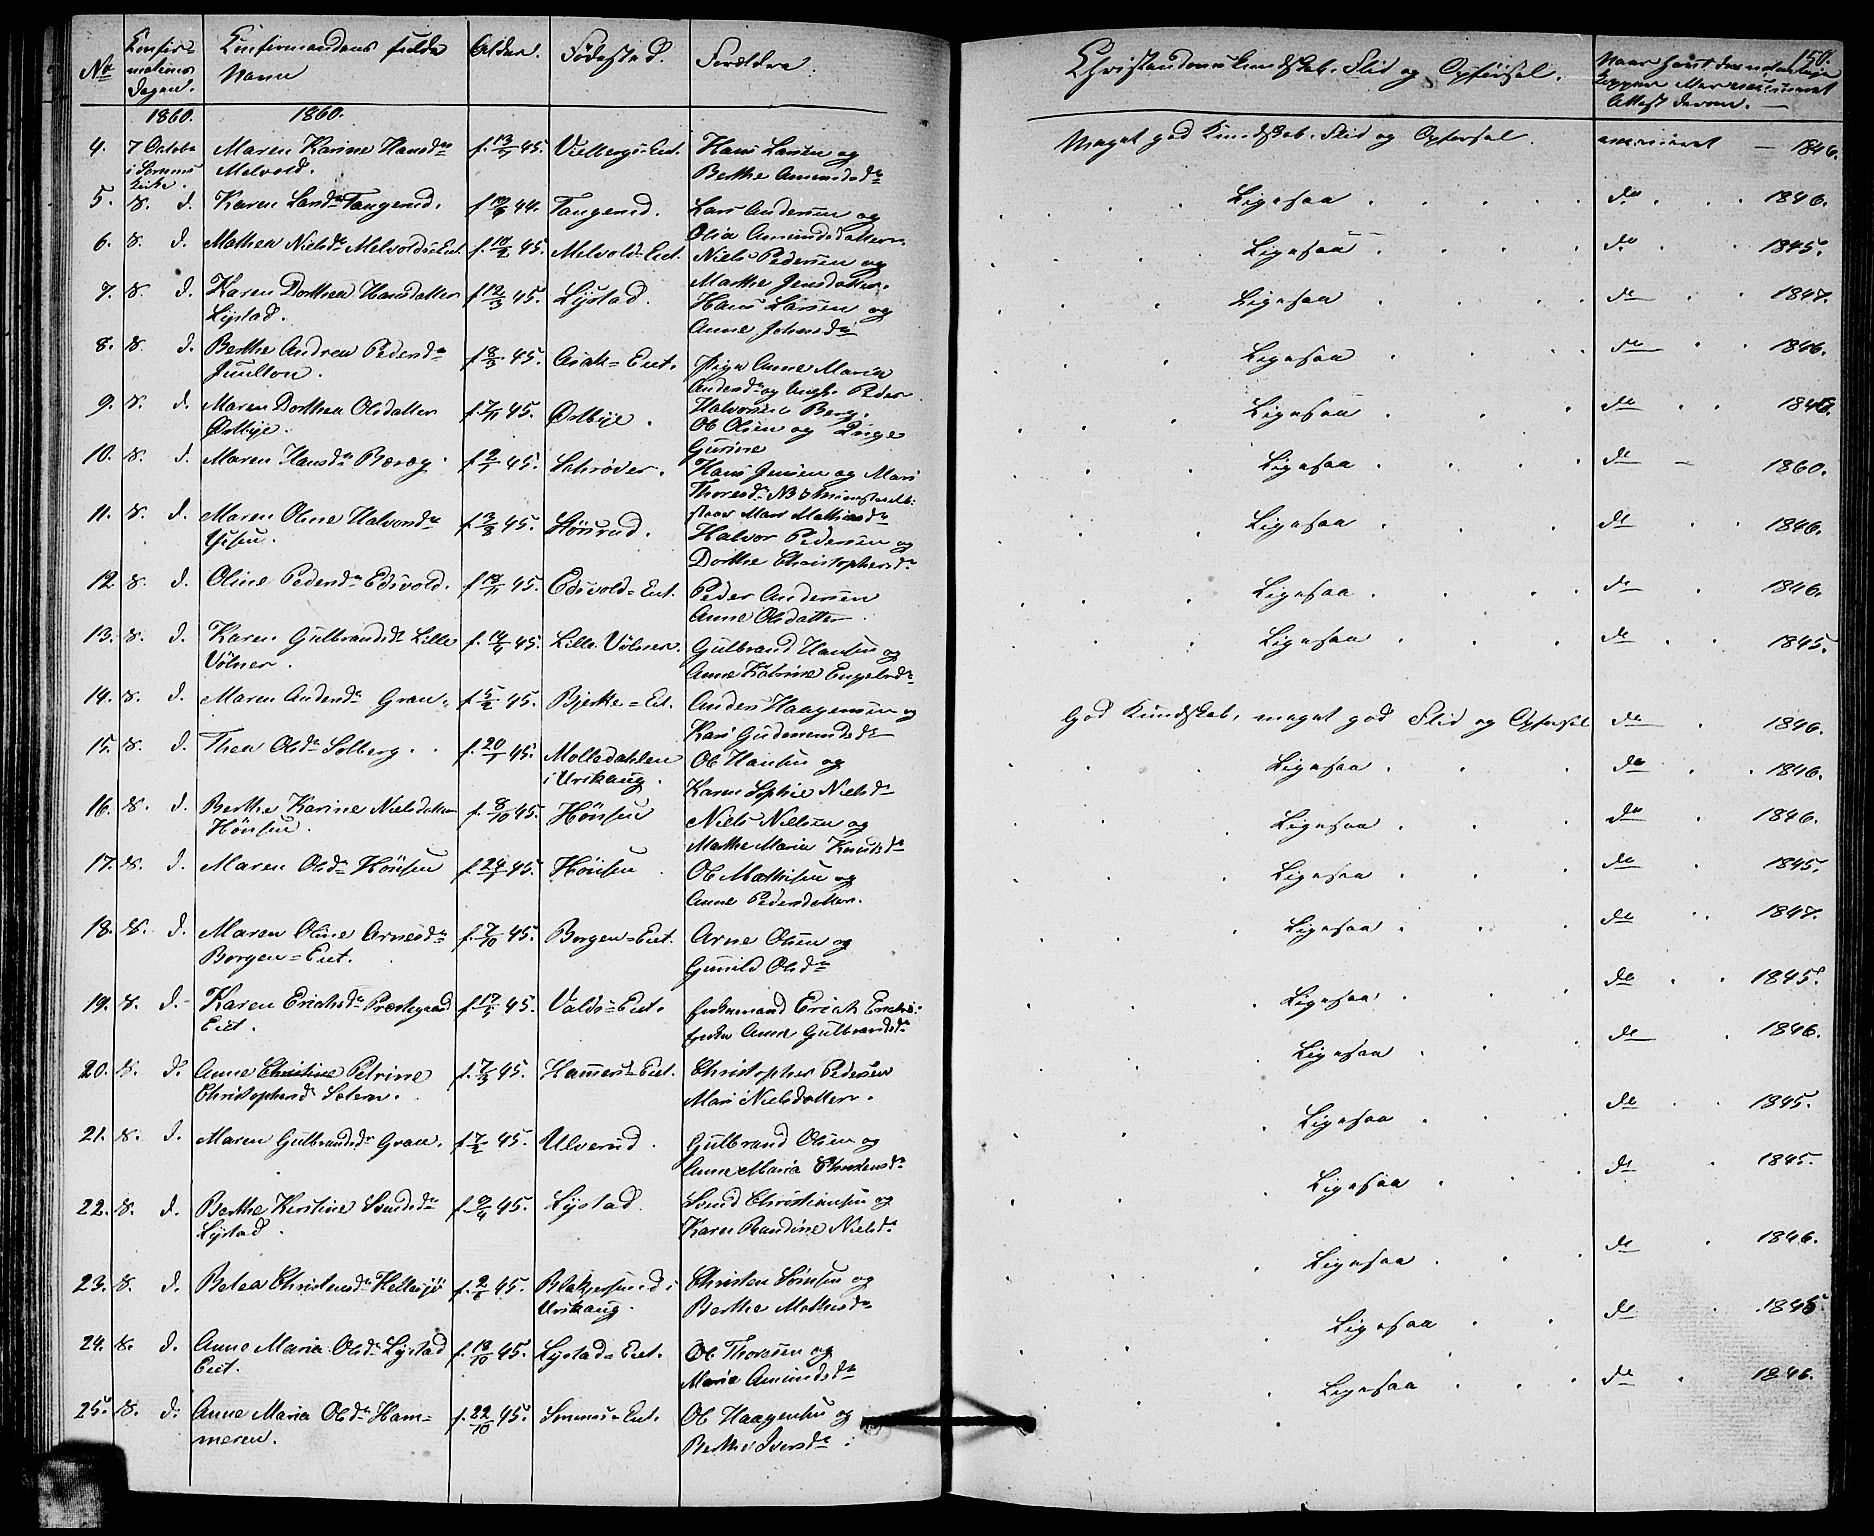 150.
No Confir-
mations
Dagen. Confirmandens fulde
Navn Alder. Fødested. Forældre. Christendomskundskab, Flid og Opførsel.
Attest derom.
1860. 1860.
4. 7 October
i Sørums
Kirke. Maren Karine Hansda
Melvold. f. 13/7 45. Hans Larsen og
Berthe Amundsda Meget god Kundskab, Flid og Opførsel. vaccineret 1846.
5. d. Karen Larsda Tangerud. f. 44. Tangerud. Lars Andersen og
Olia Amundsdatter Ligesaa do 1846.
6. d. Mathea Nielsda Melvolds-Eiet. f. 45. Melvold-Eiet. Niels Pedersen og
Marthe Jensdatter. Ligesaa do 1845.
7. d. Karen Dorthea Hansdatter
Lystad. f. 12/3 45. Lystad. Hans Larsen og
Anne Johnsda Ligesaa do 1847.
8. d. Berthe Andrea Pedersda
f. 8/3 45. Asak-Eiet. Pige Anne Maria
Andersda og Ungk. Peder
Halvorsen Berg. Ligesaa do 1846.
9. d. Maren Dorthea Olsdatter
Østbye. f. 7/11 45. Østbye. Ole Olsen og Inge
Gurine Ligesaa do
10. d. Maren Hansda f. 2/1 45. Schrøder. Hans Jensen og Mari
Thoresda Ligesaa do 1860.
11. d. Maren Oline Halvorsda
f. 3/3 45. Halvor Pedersen og
Dorthe Christophersda Ligesaa do 1846.
12. d. Oline Pedersda Edsvold. f. 45. Edsvold-Eiet. Peder Andersen
Anne Olsdatter Ligesaa do 1846.
13. d. Karen Gulbrandsda Lille
Vølner. f. 45. Lille Vølner. Gulbrand Hansen og
Anne Katrine Engelsda Ligesaa do 1845.
14. d. Maren Andersda Gran. f. 5/2 45. Bjerke-Eiet. Anders Haagensen og
Kari Gudmundsda God Kundskab, meget god Flid og Opførsel do 1846.
15. d. Thea Olsda Solberg. f. 20/1 45. Molledahlen
i Urskaug. Ole Hansen og
Karen Sophie Nielsda Ligesaa do 1846.
16. d. Berthe Karine Nielsdatter
Hønsen. f. 8/10 45. Hønsen Niels Nielsen og
Marthe Maria Knudsda Ligesaa do 1846.
17. d. Maren Olsda Hønsen f. 24/7 45. Hønsen Ole Mathisen og
Anne Pedersdatter. Ligesaa do 1845.
18. d. Maren Oline Arnesda
Borgen-Eiet. f. 7/10 45. Borgen-Eiet. Arne Olsen og
Gunild Olsda Ligesaa do 1847.
19. d. Karen Erichsda Præstegaard
Eiet. f. 17/5 45. Valds-Eiet. Enkemand Erich Erichs:
Enke Anne Gulbrandsda Ligesaa do 1845.
20. d. Anne Christine Petrine
Christophersda f. 7/3 45. Hamers-Eiet. Christopher Pedersen
Mari Nielsdatter. Ligesaa do 1846.
21. d. Maren Gulbrandsda Gran. f. 7/2 45. Ulverud. Gulbrand Olsen og
Anne Maria Christensda Ligesaa do 1845.
22. d. Berthe Kirstine Svendsda
Lystad. f. 9/4 45. Lystad. Svend Christiansen og
Karen Randine Nielsda Ligesaa do 1845.
23. d. Betea Christensda Hellesjø f. 2/6 45. Blakjersund i
Urskaug. Christen Simsen og
Berthe Mathisda Ligesaa do 1846.
24. d. Anne Maria Olsda Lystad
Eiet. f. 18/10 45. Lystads-Eiet. Ole Thoresen og
Maria Amundsda Ligesaa do
25. d. Anne Maria Olsda Ham-
meren. f. 22/10 45. Ole Haagensen og
Berthe Iversda Ligesaa do 1846.